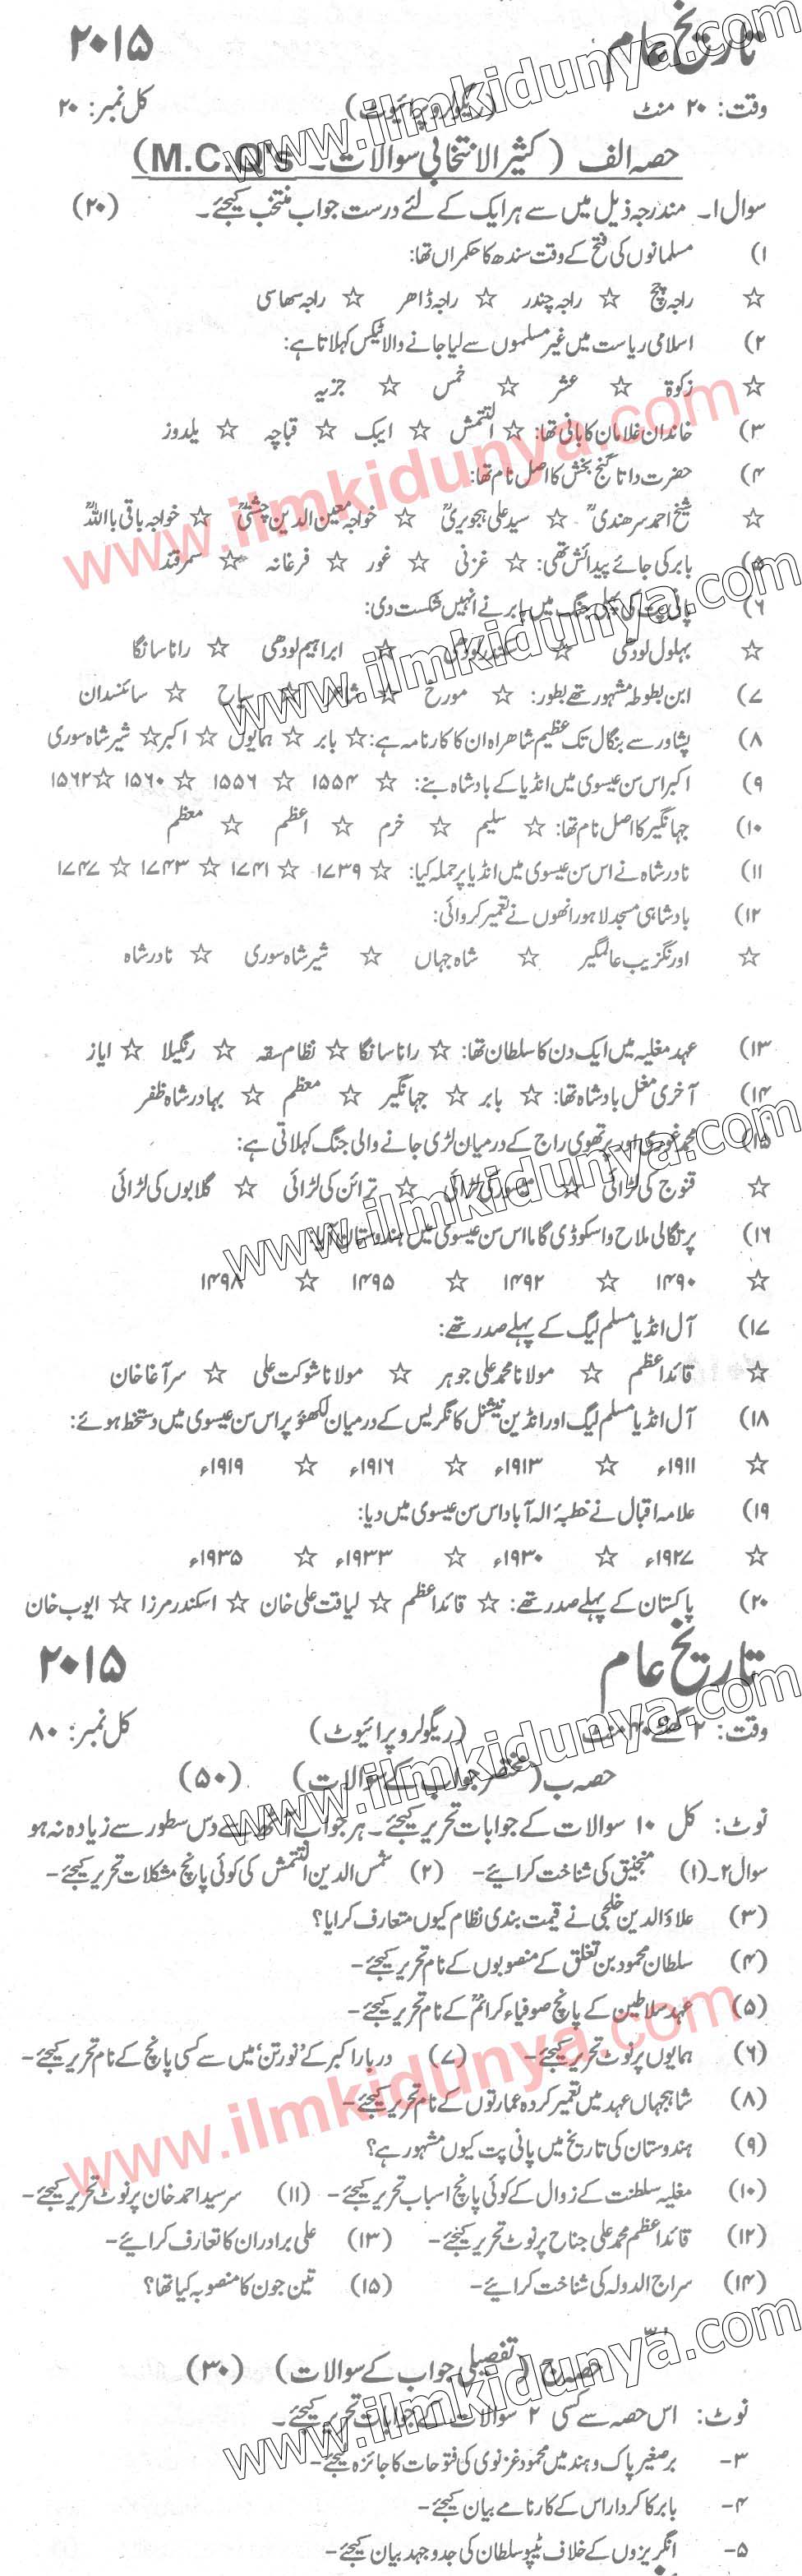 تاریخ عام ۲۰۱۵
وقت: ۲۰ منٹ (ریگولر و پرائیوٹ) کل نمبر: ۲۰
حصہ الف (کثیر الانتخابی سوالات۔ M.C.Q's)
سوال ۱۔ مندرجہ ذیل میں سے ہر ایک کے لئے درست جواب منتخب کیجئے۔ (۲۰)
۱) مسلمانوں کی فتح کے وقت سندھ کا حکمراں تھا:
☆ راجہ چچ ☆ راجہ چندر ☆ راجہ ڈاھر ☆ راجہ سہاسی
۲) اسلامی ریاست میں غیر مسلموں سے لیا جانے والا ٹیکس کہلاتا ہے:
☆ زکوٰۃ ☆ عشر ☆ خمس ☆ جزیہ
۳) خاندان غلامان کا بانی تھا: ☆ التتمش ☆ ایبک ☆ قباچہ ☆ یلدوز
۴) حضرت داتا گنج بخش کا اصل نام تھا:
☆ شیخ احمد سرھندیؒ ☆ سید علی ہجویریؒ ☆ خواجہ معین الدین چشتیؒ ☆ خواجہ باقی باللہؒ
۵) بابر کی جائے پیدائش تھی: ☆ غزنی ☆ غور ☆ فرغانہ ☆ سمرقند
۶) پانی پت کی پہلی جنگ میں بابر نے انہیں شکست دی:
☆ بہلول لودھی ☆ سکندر لودھی ☆ ابراہیم لودھی ☆ رانا سانگا
۷) ابن بطوطہ مشہور تھے بطور: ☆ مورخ ☆ شاعر ☆ سیاح ☆ سائنسدان
۸) پشاور سے بنگال تک عظیم شاھراہ ان کا کارنامہ ہے: ☆ بابر ☆ ہمایوں ☆ اکبر ☆ شیر شاہ سوری
۹) اکبر اس سن عیسوی میں انڈیا کے بادشاہ بنے: ☆ ۱۵۵۴ ☆ ۱۵۵۶ ☆ ۱۵۶۰ ☆ ۱۵۶۲
۱۰) جہانگیر کا اصل نام تھا: ☆ سلیم ☆ خرم ☆ اعظم ☆ معظم
۱۱) نادر شاہ نے اس سن عیسوی میں انڈیا پر حملہ کیا: ☆ ۱۷۳۹ ☆ ۱۷۴۱ ☆ ۱۷۴۳ ☆ ۱۷۴۷
۱۲) بادشاہی مسجد لاہور انھوں نے تعمیر کروائی:
☆ اورنگزیب عالمگیر ☆ شاہ جہاں ☆ شیر شاہ سوری ☆ نادر شاہ
۱۳) عہد مغلیہ میں ایک دن کا سلطان تھا: ☆ رانا سانگا ☆ نظام سقہ ☆ رنگیلا ☆ ایاز
۱۴) آخری مغل بادشاہ تھا: ☆ بابر ☆ جہانگیر ☆ معظم ☆ بہادر شاہ ظفر
۱۵) محمد غوری اور پرتھوی راج کے درمیان لڑی جانے والی جنگ کہلاتی ہے:
☆ قنوج کی لڑائی ☆ کی لڑائی ☆ ترائن کی لڑائی ☆ گلابوں کی لڑائی
۱۶) پرتگالی ملاح واسکوڈی گاما اس سن عیسوی میں ہندوستان آیا:
☆ ۱۴۹۰ ☆ ۱۴۹۲ ☆ ۱۴۹۵ ☆ ۱۴۹۸
۱۷) آل انڈیا مسلم لیگ کے پہلے صدر تھے:
☆ قائد اعظم ☆ مولانا محمد علی جوہر ☆ مولانا شوکت علی ☆ سر آغا خان
۱۸) آل انڈیا مسلم لیگ اور انڈین نیشنل کانگریس کے درمیان لکھنؤ پر اس سن عیسوی میں دستخط ہوئے:
☆ ۱۹۱۱ء ☆ ۱۹۱۳ء ☆ ۱۹۱۶ء ☆ ۱۹۱۹ء
۱۹) علامہ اقبال نے خطبۂ الہ آباد اس سن عیسوی میں دیا:
☆ ۱۹۲۷ء ☆ ۱۹۳۰ء ☆ ۱۹۳۳ء ☆ ۱۹۳۵ء
۲۰) پاکستان کے پہلے صدر تھے: ☆ قائد اعظم ☆ لیاقت علی خان ☆ اسکندر مرزا ☆ ایوب خان
تاریخ عام ۲۰۱۵
وقت: ۲ گھنٹے ۴۰ منٹ (ریگولر و پرائیوٹ) کل نمبر: ۸۰
حصہ ب (مختصر جواب کے سوالات) (۵۰)
نوٹ: کل ۱۰ سوالات کے جوابات تحریر کیجئے۔ ہر جواب آٹھ سے دس سطور سے زیادہ نہ ہو
سوال ۲۔ (۱) منجنیق کی شناخت کرائیے- (۲) شمس الدین التتمش کی کوئی پانچ مشکلات تحریر کیجئے-
(۳) علاؤالدین خلجی نے قیمت بندی نظام کیوں متعارف کرایا؟
(۴) سلطان محمود بن تغلق کے منصوبوں کے نام تحریر کیجئے-
(۵) عہد سلاطین کے پانچ صوفیاء کرامؒ کے نام تحریر کیجئے-
(۶) ہمایوں پر نوٹ تحریر کیجئے- (۷) دربار اکبر کے 'نورتن' میں سے کسی پانچ کے نام تحریر کیجئے-
(۸) شاہجہاں عہد میں تعمیر کردہ عمارتوں کے نام تحریر کیجئے-
(۹) ہندوستان کی تاریخ میں پانی پت کیوں مشہور ہے؟
(۱۰) مغلیہ سلطنت کے زوال کے کوئی پانچ اسباب تحریر کیجئے- (۱۱) سر سید احمد خان پر نوٹ تحریر کیجئے-
(۱۲) قائد اعظم محمد علی جناح پر نوٹ تحریر کیجئے- (۱۳) علی برادران کا تعارف کرائیے-
(۱۴) سراج الدولہ کی شناخت کرائیے- (۱۵) تین جون کا منصوبہ کیا تھا؟
حصہ ج (تفصیلی جواب کے سوالات) (۳۰)
نوٹ: اس حصہ سے کسی ۲ سوالات کے جوابات تحریر کیجئے۔
۳- برصغیر پاک و ہند میں محمود غزنوی کی فتوحات کا جائزہ لیجئے-
۴- بابر کا کردار اس کے کارنامے بیان کیجئے-
۵- انگریزوں کے خلاف ٹیپو سلطان کی جدوجہد بیان کیجئے-
www.ilmkidunya.com
www.ilmkidunya.com
www.ilmkidunya.com
www.ilmkidunya.com
www.ilmkidunya.com
www.ilmkidunya.com
www.ilmkidunya.com